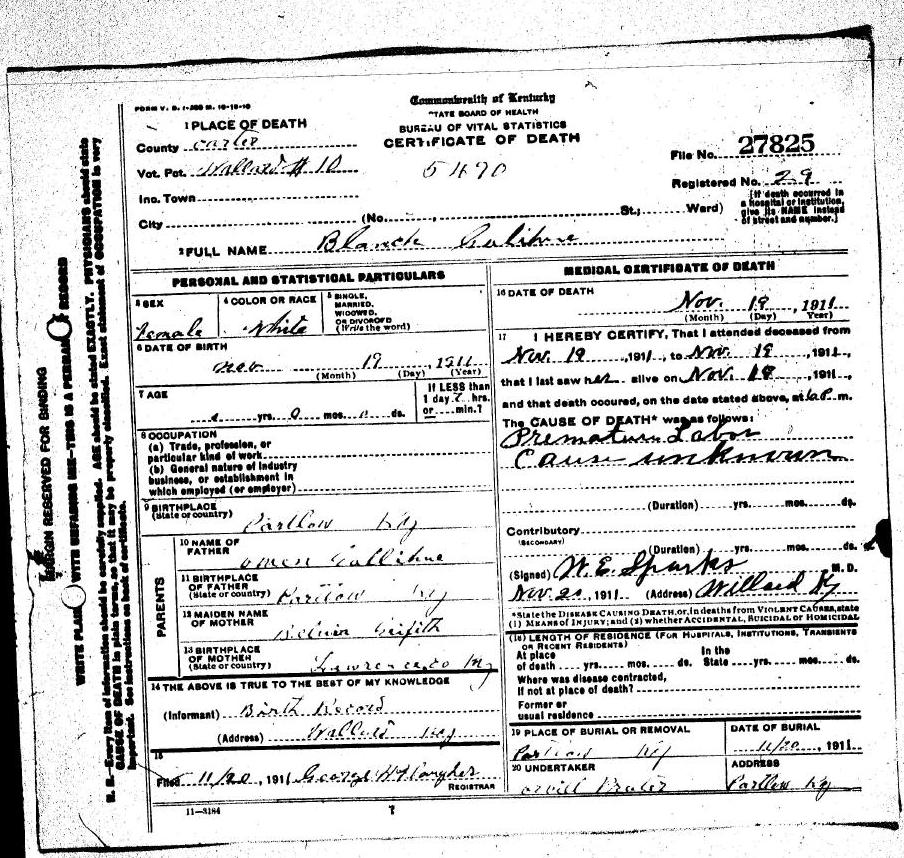 FORM V. S. 1-
Commonwealth of Kentucky
STATE BOARD OF HEALTH
BUREAU OF VITAL STATISTICS
CERTIFICATE OF DEATH
1 PLACE OF DEATH
County Carter
Vot. Pct. Willard # 10
5490
File No. 27825
Registered No. 29
Inc. Town
[If death occurred in a hospital or institution, give its NAME instead of street and number.]
City (No. , St.; Ward)
2 FULL NAME Blanch
PERSONAL AND STATISTICAL PARTICULARS
3 SEX
Female
4 COLOR OR RACE
White
5 SINGLE, MARRIED, WIDOWED, OR DIVORCED (Write the word)
6 DATE OF BIRTH
Nov 19, 1911
(Month) (Day) (Year)
7 AGE
yrs. 0 mos. ds.
If LESS than 1 day, hrs. or min.?
8 OCCUPATION
(a) Trade, profession, or particular kind of work
(b) General nature of industry business, or establishment in which employed (or employer)
9 BIRTHPLACE
(State or country) Partlow Ky
PARENTS
10 NAME OF FATHER
Owen Callihue
11 BIRTHPLACE OF FATHER
(State or country) Partlow Ky
12 MAIDEN NAME OF MOTHER
Griffith
13 BIRTHPLACE OF MOTHER
(State or country) Lawrence co Ky
14 THE ABOVE IS TRUE TO THE BEST OF MY KNOWLEDGE
(Informant) Birth Record
(Address) Willard Ky
15
Filed 11/20, 1911 George
REGISTRAR
MEDICAL CERTIFICATE OF DEATH
16 DATE OF DEATH
Nov. 19, 1911
(Month) (Day) (Year)
17 I HEREBY CERTIFY, That I attended deceased from
Nov. 19, 1911, to Nov. 19, 1911,
that I last saw her alive on Nov. 19, 1911,
and that death occured, on the date stated above, at m.
The CAUSE OF DEATH* was as follows:
Premature Labor
Cause unknown
(Duration) yrs. mos. ds.
Contributory
(SECONDARY)
(Duration) yrs. mos. ds.
(Signed) W. E. Sparks M. D.
Nov. 20, 1911 (Address) Willard Ky
*State the DISEASE CAUSING DEATH, or, in deaths from VIOLENT CAUSES, state (1) MEANS OF INJURY; and (2) whether ACCIDENTAL, SUICIDAL or HOMICIDAL
(18) LENGTH OF RESIDENCE (FOR HOSPITALS, INSTITUTIONS, TRANSIENTS OR RECENT RESIDENTS)
At place of death yrs. mos. ds. In the State yrs. mos. ds.
Where was disease contracted, if not at place of death?
Former or usual residence
19 PLACE OF BURIAL OR REMOVAL
Partlow Ky
DATE OF BURIAL
11/20, 1911
20 UNDERTAKER
ADDRESS
Partlow Ky
11-3184
MARGIN RESERVED FOR BINDING
WRITE PLAINLY WITH UNFADING INK—THIS IS A PERMANENT RECORD
N. B.—Every item of information should be carefully supplied. AGE should be stated EXACTLY. PHYSICIANS should state
CAUSE OF DEATH in plain terms, so that it may be properly classified. Exact statement of OCCUPATION is very
important. See instructions on back of certificate.